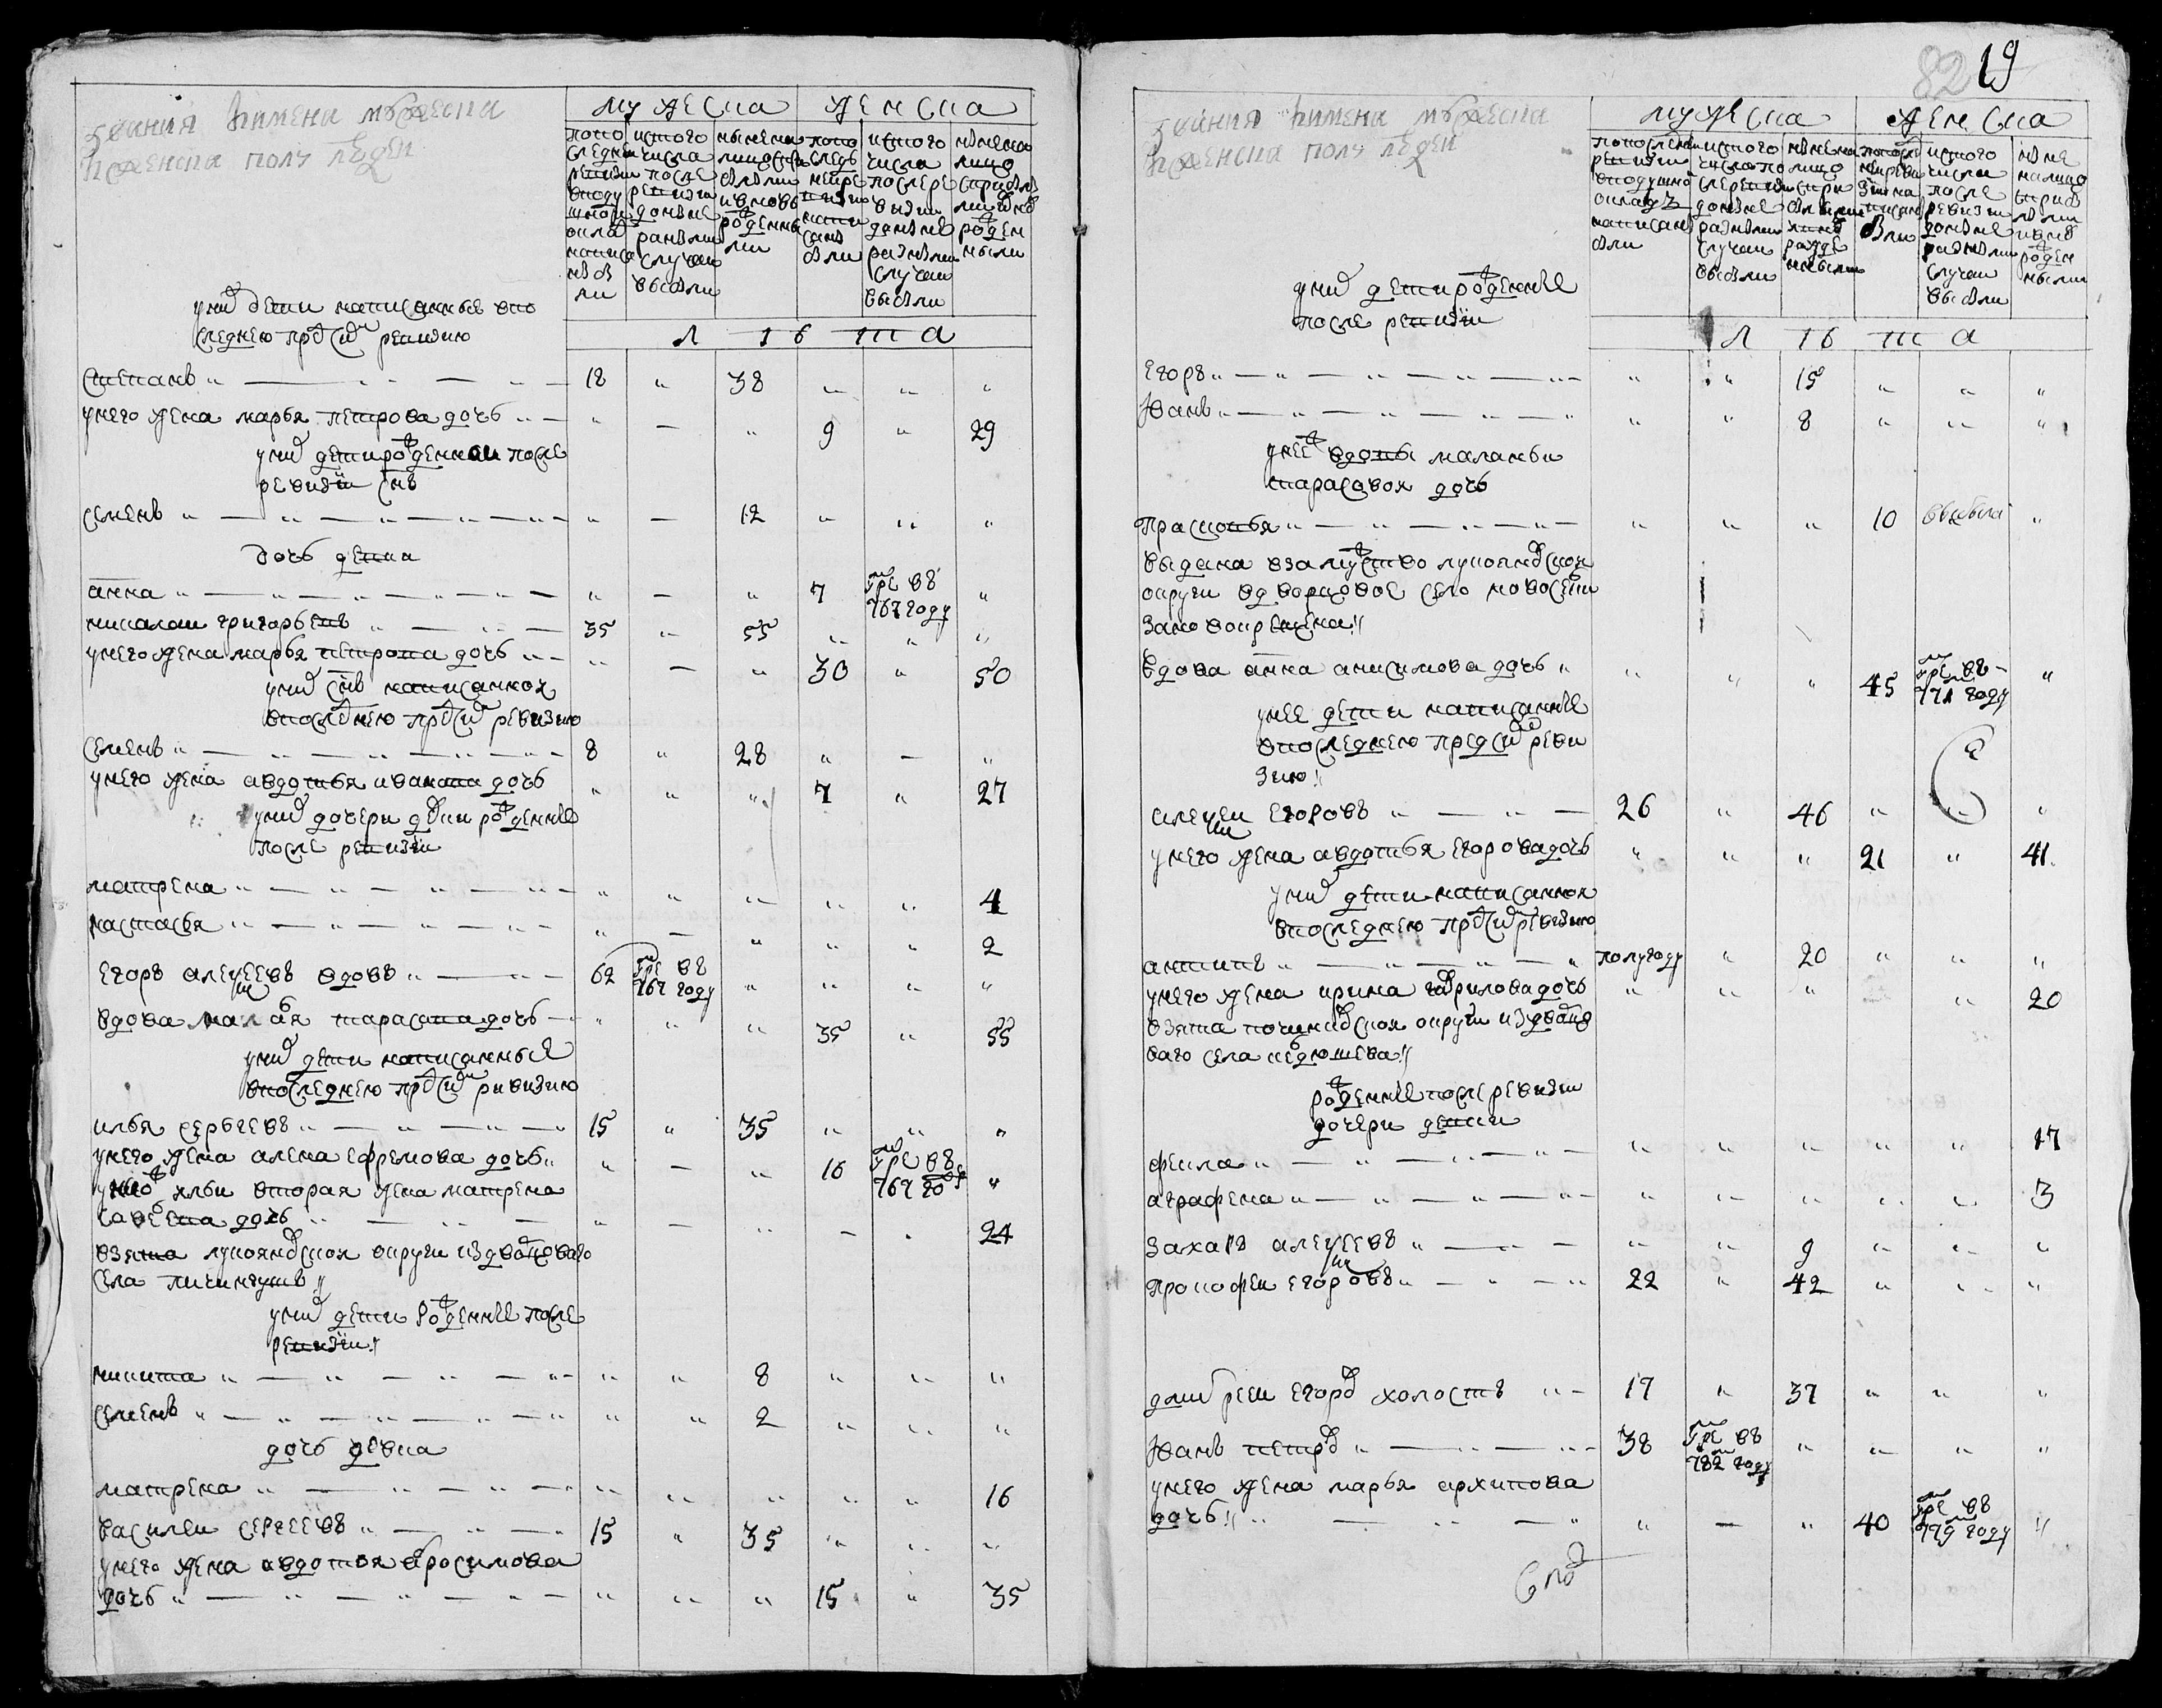 звания и имена мужеска
и женска полу людей
мужеска женска
попо следней ревизии вподу шной оклад написа ны бы ли
истого числа после ревизии доныне разными случаи выбыли
ныне на лицо с прибылыми и вновь рожденны ми
попо следь ней ре визии напи саны были
истого числа после ре визии доныне разными случаи выбыли
ныне на лицо с прибылы ми и внов рожден ными
лѣта
уних дети написанные впо
следнею пред сим ревизию
степанъ " 18 " 38 " " "
унего жена марья петрова дочь " — " 9 " 29
уних дети рожденнои после
ревизии снъ
семенъ " — 12 " " "
дочь девка
анна " — " 7 умре въ 767 году "
николаи григорьевъ 35 " 55 " " "
унего жена марья петрова дочь " — " 30 " 50
уних снъ написанной
впоследнею пред сим ревизию
семенъ 8 " 28 " — "
унего жена авдотья иванова дочь " " " 7 " 27
уних дочери девки рожденные
после ревизии
матрена " " " " " 4
настасья " — " " " 2
егоръ алексеевъ вдовъ 62 умре въ 767 году " " " "
вдова маланья тарасова дочь " " " 35 " 55
уних дети написанные
впоследнею пред сим ривизию
илья сергеевъ 15 " 35 " " "
унего жена алена ефремова дочь " — " 16 умре въ 767 году "
унего ж ильи вторая жена матрена
савеева дочь " — " — " 24
взята лукояновской округи из дворцоваго
села пичингушъ //
уних дети рожденные после
ревизии //
никита " " 8 " " "
семенъ " " 2 " " "
дочь девка
матрена " " " " " 16
василеи сергеевъ 15 " 35 " " "
унего жена авдотья абросимова
дочь " " " 15 " 35
82 19
звания и имена мужеска
и женска полу людей
мужеска женска
попоследней ревизии вподушной окладъ написаны были
истого числа по сле ревизии доныне разными случаи выбыли
ныне на лицо с при былыми и внов рожде нными
попосле дней реви зии на писаны были
истого числа после ревизии доныне разными случаи выбыли
ныне налицо с приб лыми и внов рожден ными
уних дети рожденные
после ревизии
лѣта
егоръ " " 15 " " "
иванъ " " 8 " " "
унее ж вдовы маланьи
тарасовой дочь
прасковья " " " 10 выбыла "
выдана взамужство лукояновской
округи в дворцовое село новосели
за новокрещена //
вдова анна анисимова дочь " " " 45 умре въ 771 году "
унее дети написанные
впоследнею пред сим реви
зию //
алексеи егоровъ 26 " 46 " " "
унего жена авдотья егорова дочь " " " 21 " 41
уних дети написанной
впоследнею пред сим ревизию
антипъ полугоду " 20 " " "
унего жена ирина гаврилова дочь " " " " 20
взята починковской округи из дворцо
ваго села кедюшева //
рожденные после ревизии
дочери девки
фекла " " " " " 17
аграфена " " " " " 3
захаръ алексеевъ " " 9 " " "
прокофеи егоровъ 22 " 42 " " "
дмитреи егоров холостъ 17 " 37 " " "
иванъ петров 38 умре въ 782 году " " " "
унего жена марья архипова
дочь // " — " 40 умре въ 779 году "